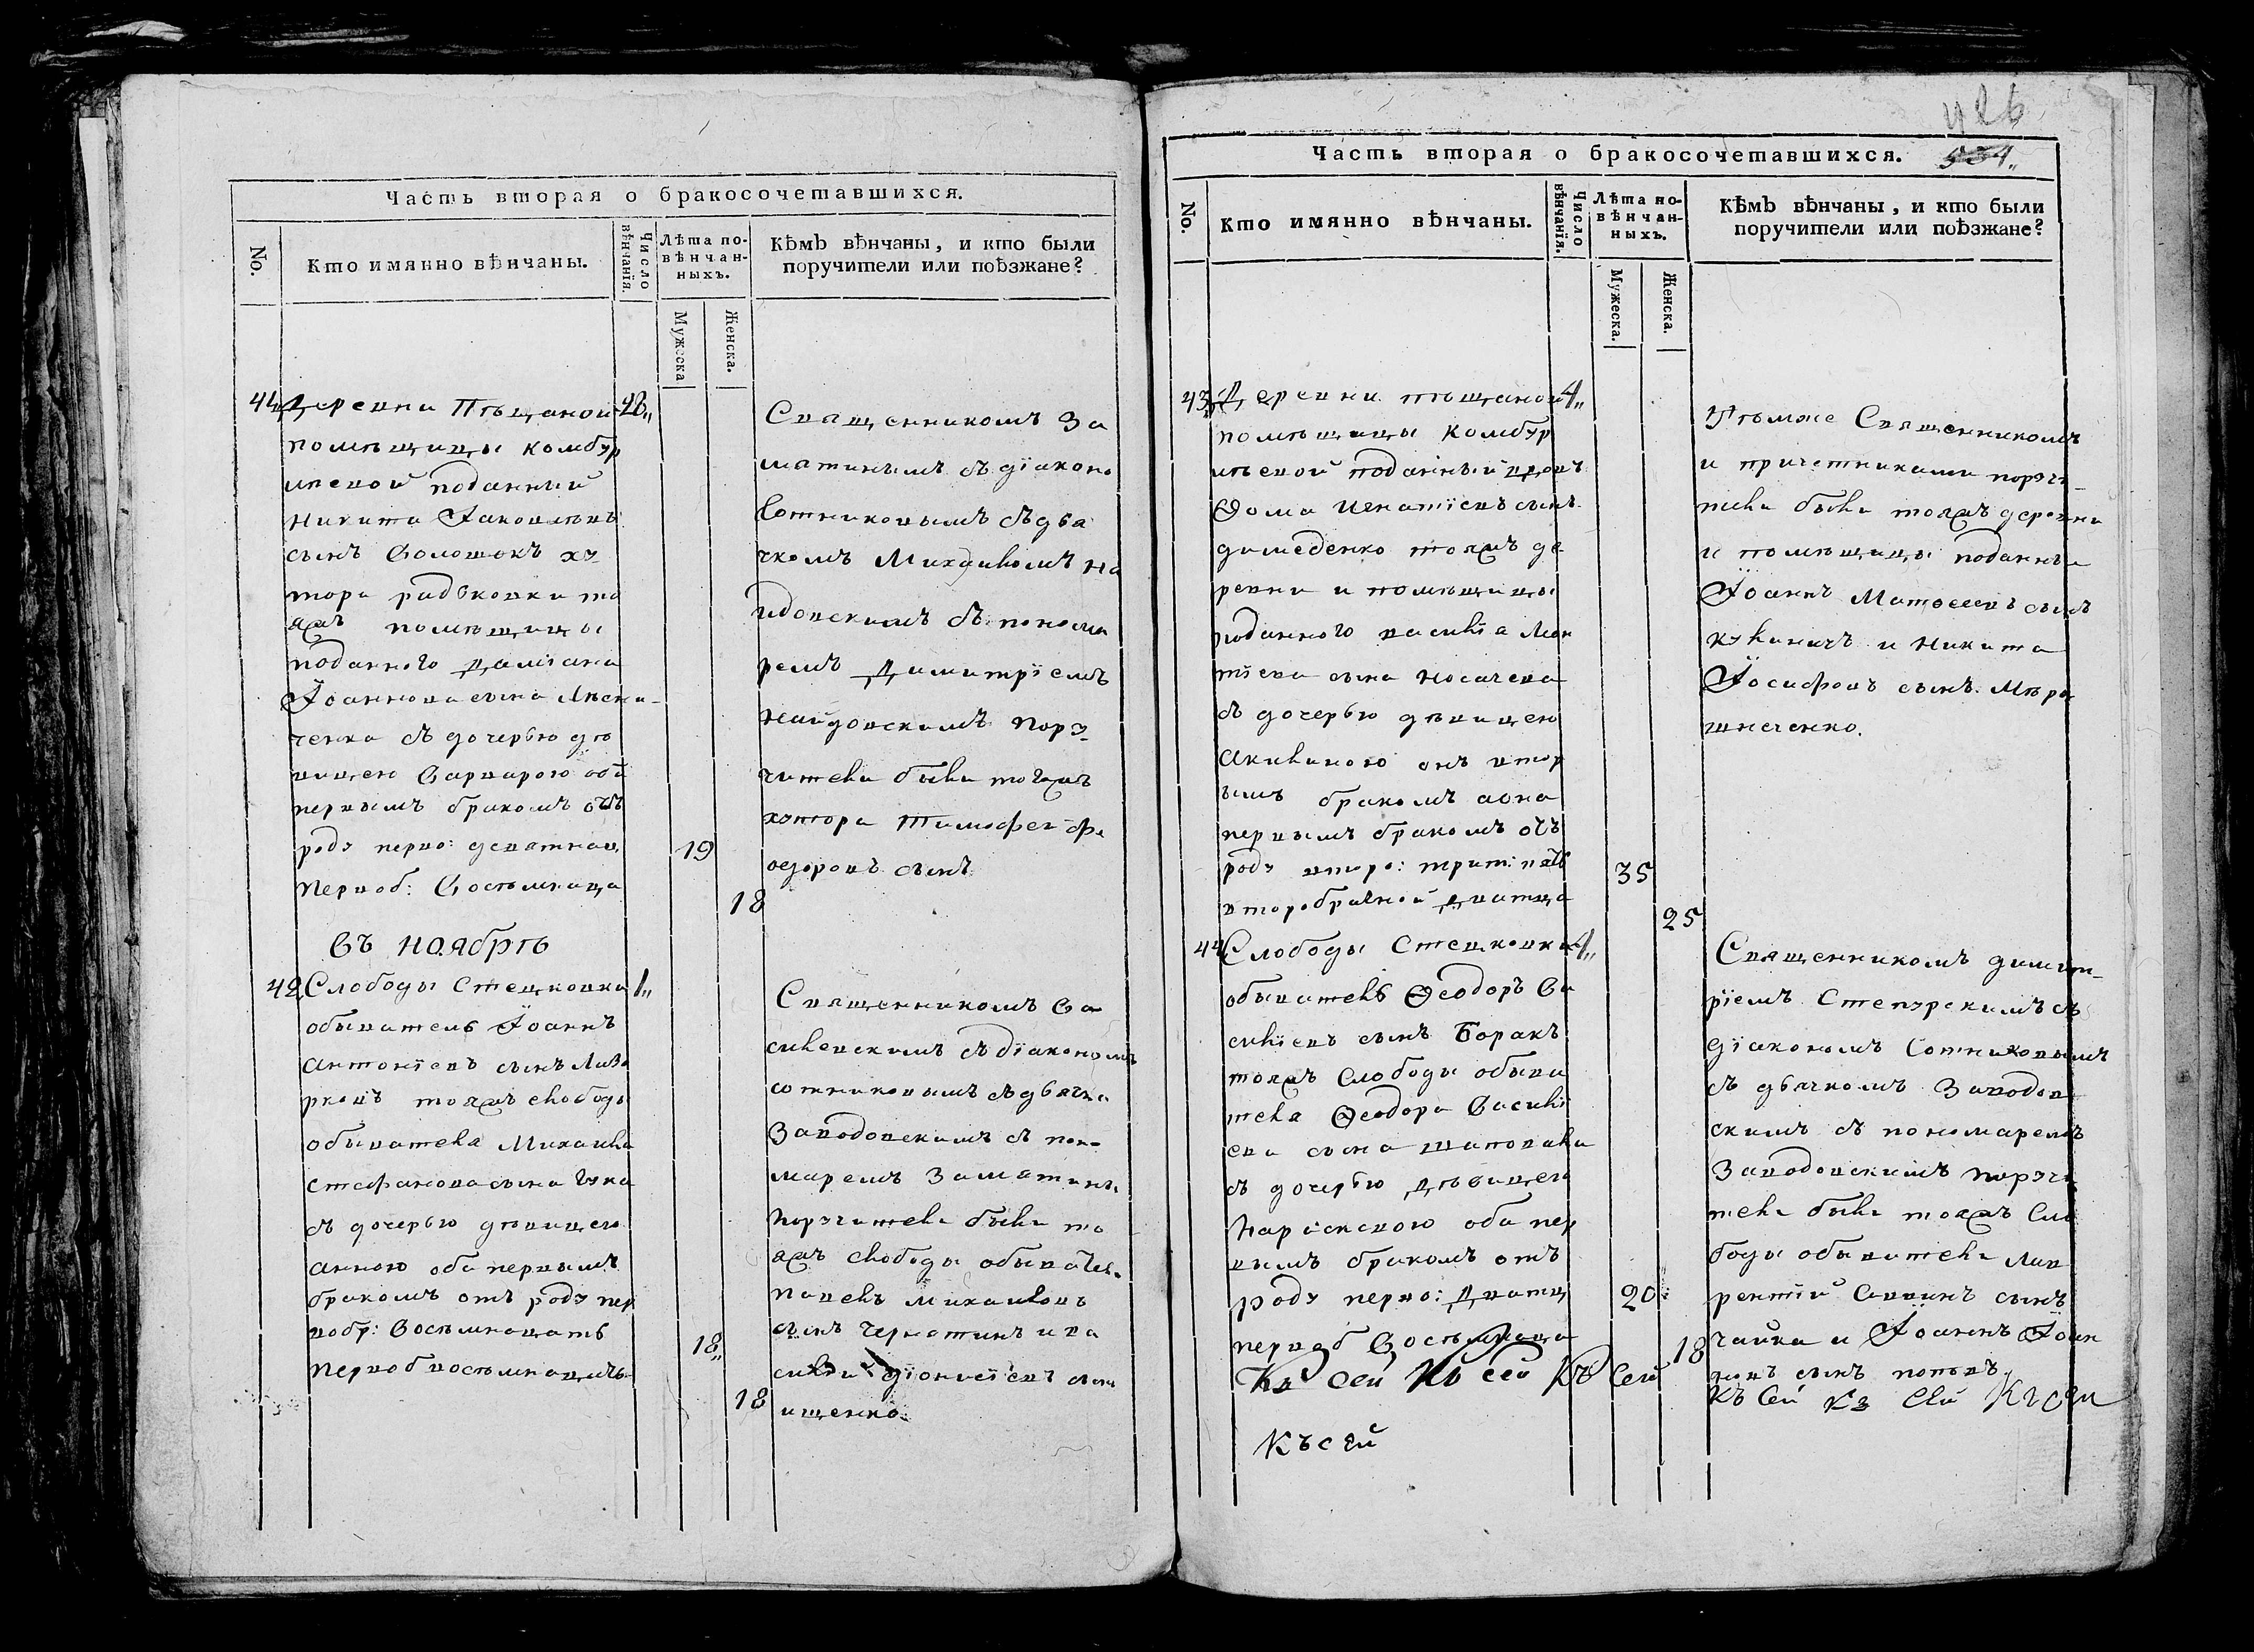 Часть вторая о бракосочетавшихся.
No.
Кто имянно вѣнчаны.
Число вѣнчанїя.
Лѣта по-
вѣнчан-
ныхъ.
Мужеска
Женска.
Кѣмъ вѣнчаны, и кто были
поручители или поѣзжане?
41 Деревни Пѣщаной 28,,
помѣщицы Комбур
лѣевой поданный
Никита Іаковлевъ
сынъ Волошокъ ху
тора радьковки то
яжъ помѣщицы
поданного Даміана
Іоаннова сына
ченка съ дочерью дѣ
вицею Варварою оба
первымъ бракомъ отъ
роду перво: девятнац
Первоб: Восѣмнаца
19
18
Священникомъ За
матинымъ съ діакон
Сотниковымъ съ дья
чкомъ Михаиломъ На
йдовскимъ съ понома
ремъ Димитріемъ
Найдовскимъ Пору
чители были тогожъ
хутора Тимофей Фе
одоровъ сынъ
Въ ноябрѣ
42 Слободы Стецковки 1,,
обыватель Іоаннъ
Антонїевъ сынъ
тояжъ слободы
обывателя Михаила
Стефанова сына
съ дочерью дѣвицею
Анною оба первымъ
бракомъ отъ роду пер
вобр: Восѣмнацать
первоб восѣмнацать
18,,
18
Священникомъ Ва
силевскимъ съ дїакономъ
сотниковымъ съ дьячко
Заводовскимъ съ поно
маремъ Заматины
Поручители были то
яжъ слободы обывател
Павелъ Михаиловъ
сынъ Чернотинъ и Ва
силій Дїонисїевъ сын
ищенко.
426
534,,
Часть вторая о бракосочетавшихся.
No.
Кто имянно вѣнчаны.
Число вѣнчанїя.
Лѣта по-
вѣнчан-
ныхъ.
Мужеска.
Женска.
Кѣмъ вѣнчаны, и кто были
поручители или поѣзжане?
43 Деревни пѣщаной 4,,
помѣщицы Комбур
лѣевой поданный вдовъ
Ѳома Игнатїевъ сынъ
тояжъ де
ревни и помѣщицы
поданного василїа Леон
тїева сына Носачева
съ дочерью дѣвицею
Акилиною онъ втор
ымъ бракомъ аона
первымъ бракомъ отъ
роду второ: трит: пять
второбрачной дватца
35
25
Тѣмже Священникомъ
и причетниками поручи
тели были тояжъ деревни
и помѣщицы поданны
Іоаннъ Матвеевъ сынъ
и Никита
Іосифовъ сынъ Мѣро
шниченко.
44 Слободы Стецковки 4,,
обыватель Ѳеодоръ Ва
силїевъ сынъ Боракъ
тояжъ Слободы обыва
теля Ѳеодора Василї
ева сына Шаповала
съ дочерью Дѣвицею
Параскевою оба пер
вымъ бракомъ отъ
роду перво: Дватц
первоб Восѣмнаца
20
18
Священникомъ димит
рїемъ Степурскимъ съ
дїакономъ Сотниковымъ
съ дьячкомъ Заводов
скимъ съ пономаремъ
Заводовскимъ Поручи
тели были тояжъ Сло
боды обыватели Лав
рентій Саввинъ сынъ
чайка и Іоаннъ Іоан
новъ сынъ поповъ
Къ сей Къ сей Къ Сей
Къ Сей Къ Сей Къ сей
Къ сей